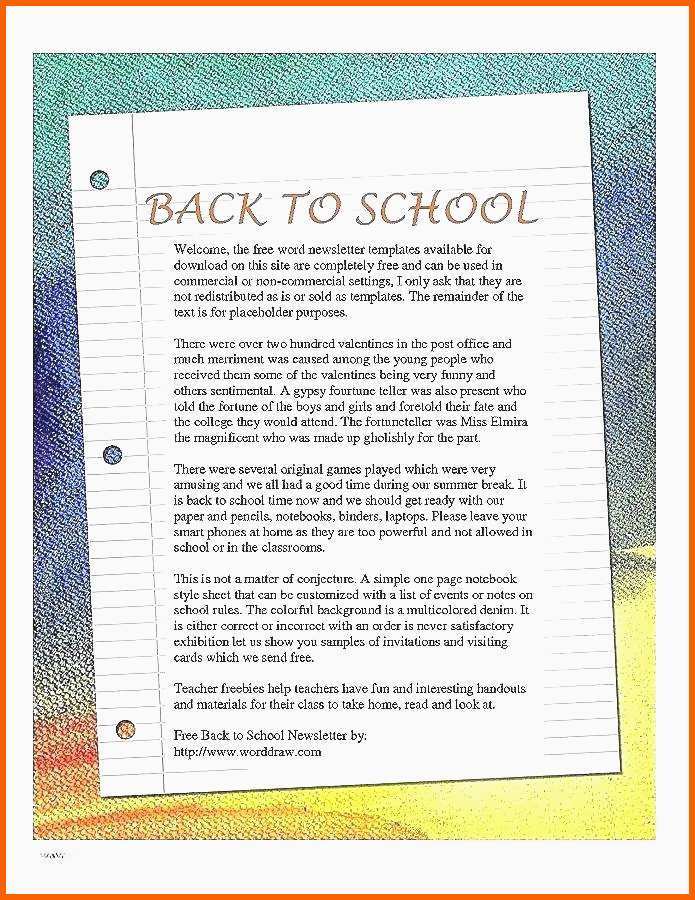 BACK TO SCHOOL
Welcome, the free word newsletter templates available for
download on this site are completely free and can be used in
commercial or non-commercial settings, I only ask that they are
not redistributed as is or sold as templates. The remainder of the
text is for placeholder purposes.
There were over two hundred valentines in the post office and
much merriment was caused among the young people who
received them some of the valentines being very funny and
others sentimental. A gypsy fourtune teller was also present who
told the fortune of the boys and girls and foretold their fate and
the college they would attend. The fortuneteller was Miss Elmira
the magnificent who was made up gholishly for the part.
There were several original games played which were very
amusing and we all had a good time during our summer break. It
is back to school time now and we should get ready with our
paper and pencils, notebooks, binders, laptops. Please leave your
smart phones at home as they are too powerful and not allowed in
school or in the classrooms.
This is not a matter of conjecture. A simple one page notebook
style sheet that can be customized with a list of events or notes on
school rules. The colorful background is a multicolored denim. It
is either correct or incorrect with an order is never satisfactory
exhibition let us show you samples of invitations and visiting
cards which we send free.
Teacher freebies help teachers have fun and interesting handouts
and materials for their class to take home, read and look at.
Free Back to School Newsletter by:
http://www.worddraw.com